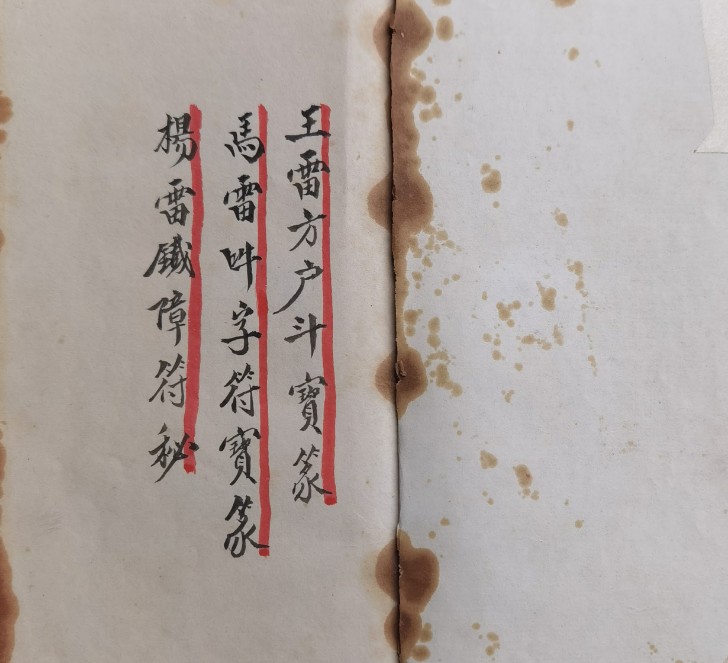 王雷方户斗寳篆
馬雷吽字符寳篆
楊雷鐵障符秘